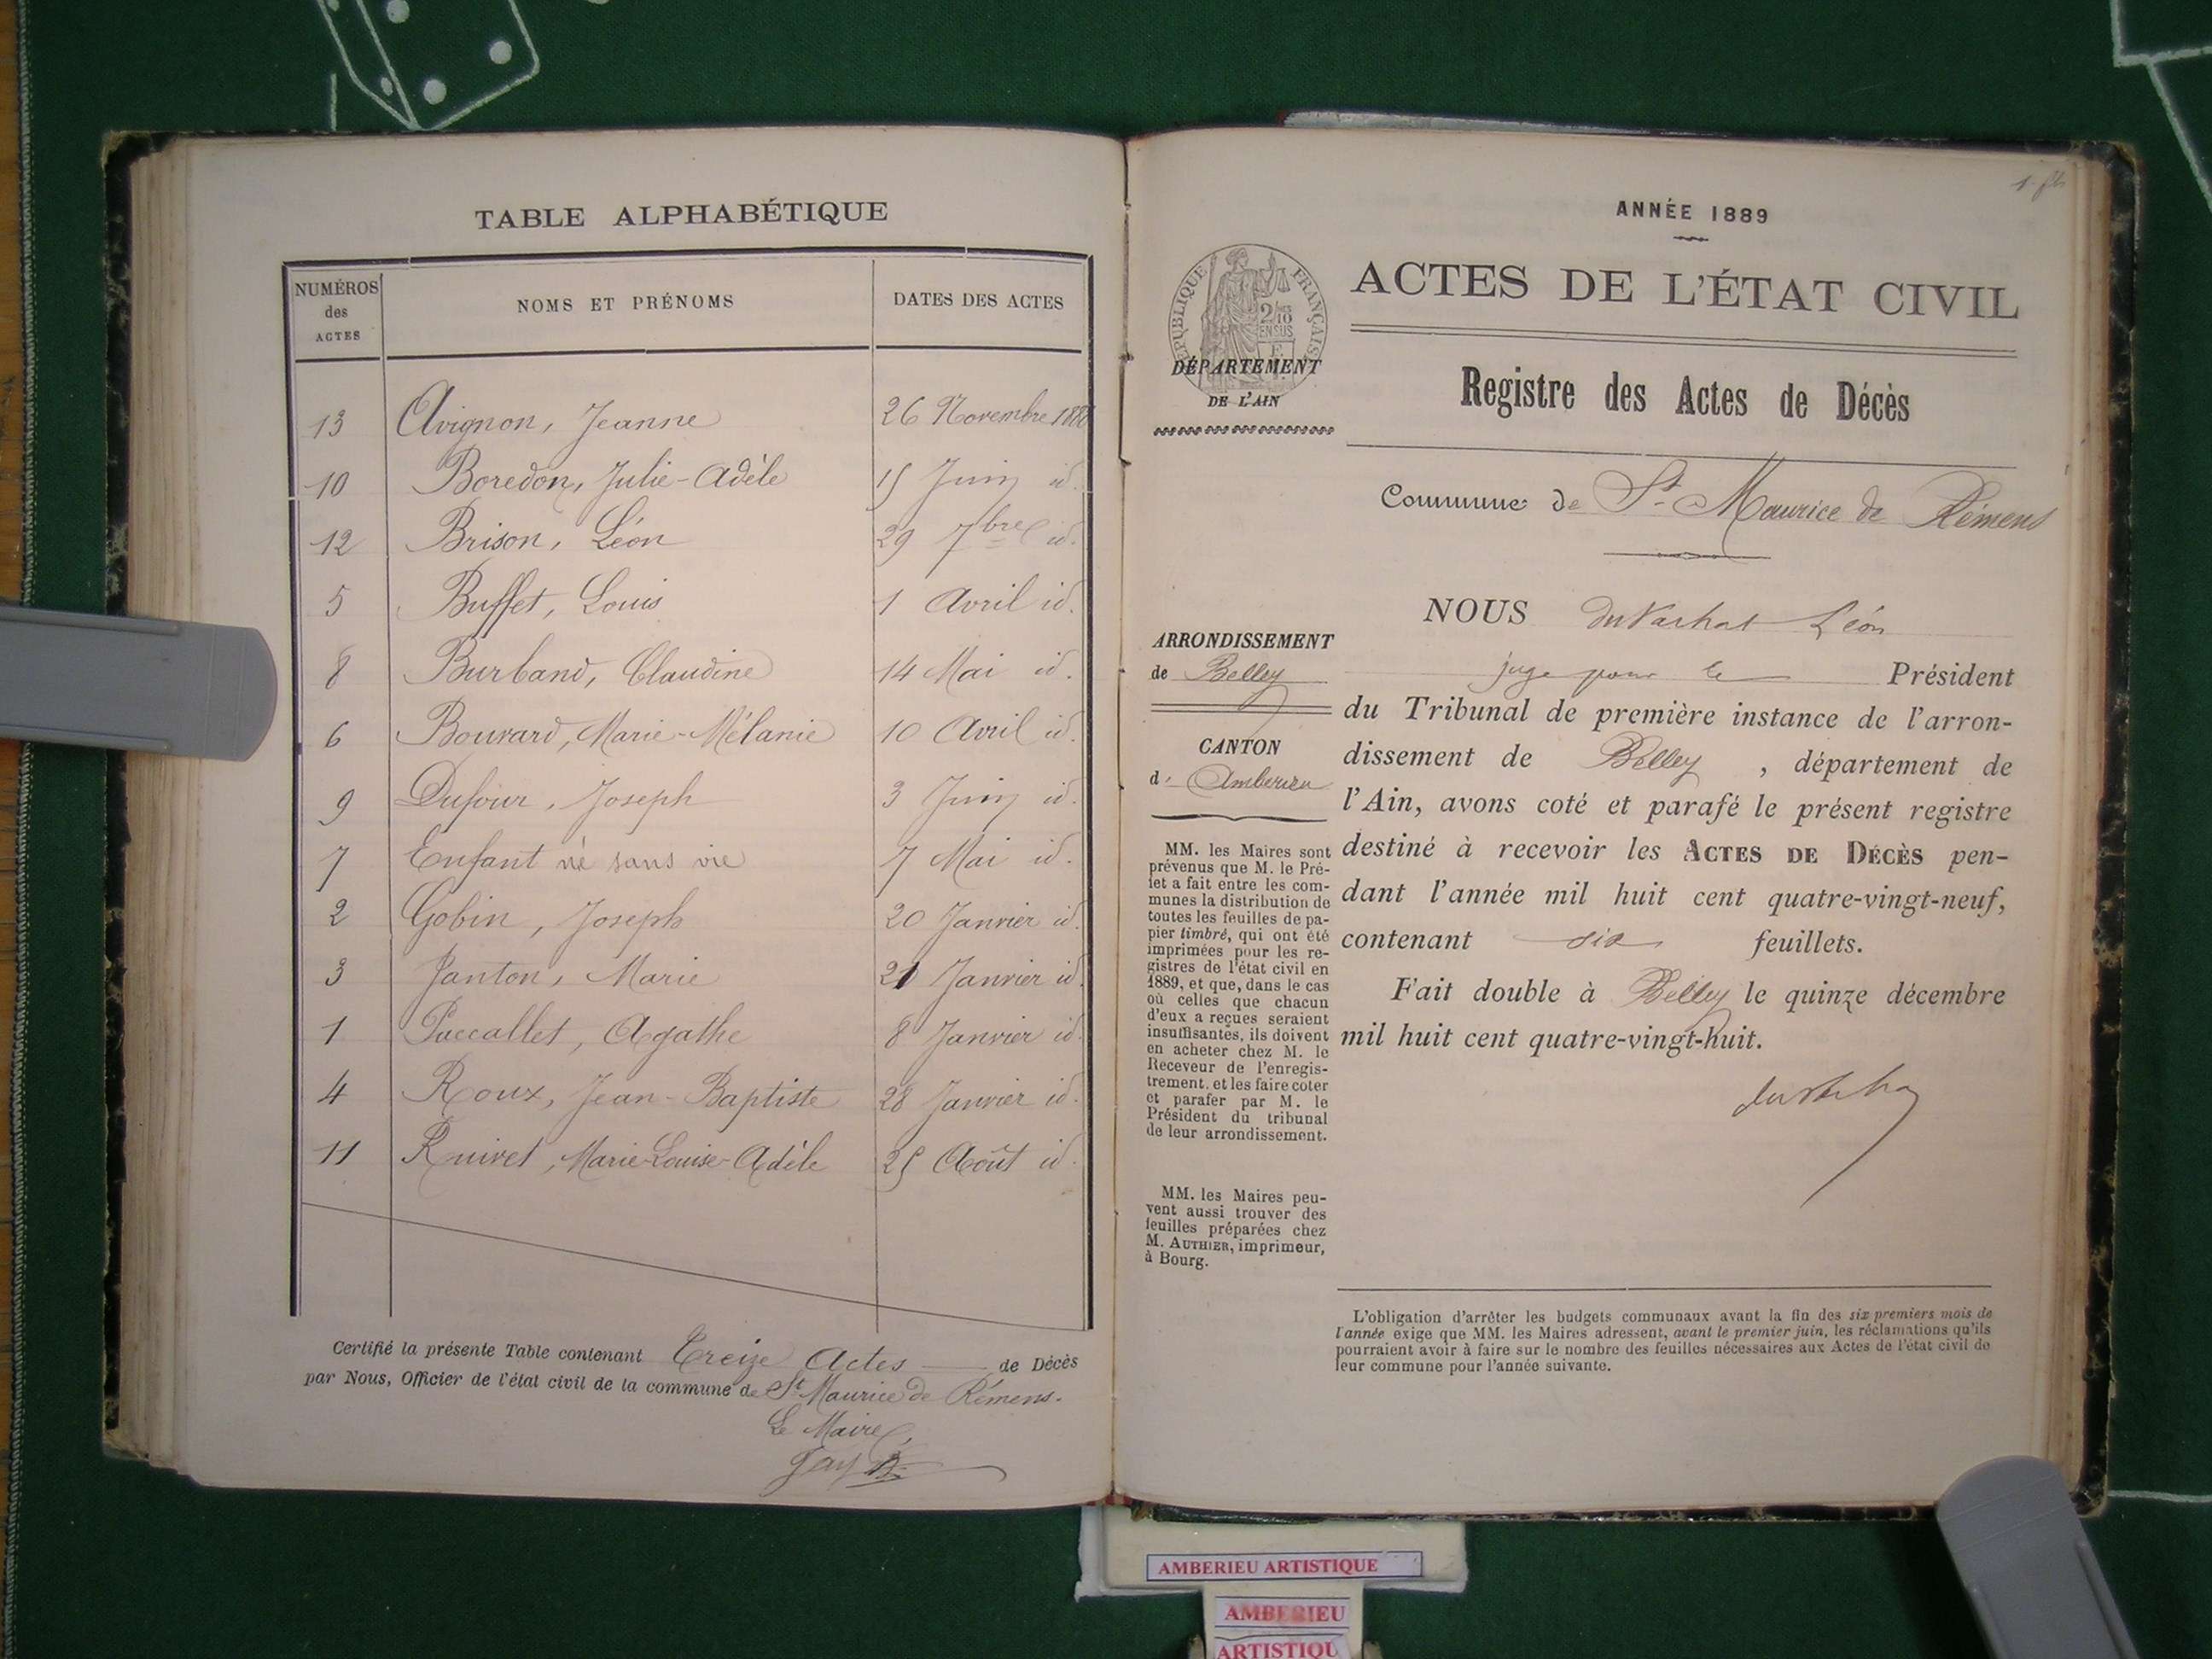 TABLE ALPHABÉTIQUE
NUMÉROS des ACTES
NOMS ET PRÉNOMS
DATES DES ACTES
13 Avignon, Jeanne 26 Novembre 1888
10 Boredon, Julie-Adèle 15 Juin id.
12 Brison, Léon 29 7bre id.
5 Buffet, Louis 1 Avril id.
8 Burband, Claudine 14 Mai id.
6 Bouvard, Marie-Mélanie 10 Avril id.
9 Dufour, Joseph 3 Juin id.
7 Enfant né sans vie 7 Mai id.
2 Gobin, Joseph 20 Janvier id.
3 Janton, Marie 21 Janvier id.
1 Paccallet, Agathe 8 Janvier id.
4 Roux, Jean-Baptiste 28 Janvier id.
11 Ruivet, Marie-Louise-Adèle 25 Août id.
Certifié la présente Table contenant Treize Actes de Décès
par Nous, Officier de l'état civil de la commune de St Maurice de Rémens.
Le Maire,
Gay B
ANNÉE 1889
ACTES DE L'ÉTAT CIVIL
RÉPUBLIQUE FRANÇAISE
DÉPARTEMENT
DE L'AIN
Registre des Actes de Décès
Commune de St Maurice de Rémens
ARRONDISSEMENT
de Belley
CANTON
d' Amberieu
MM. les Maires sont
prévenus que M. le Pré-
fet a fait entre les com-
munes la distribution de
toutes les feuilles de pa-
pier timbré, qui ont été
imprimées pour les re-
gistres de l'état civil en
1889, et que, dans le cas
où celles que chacun
d'eux a reçues seraient
insuffisantes, ils doivent
en acheter chez M. le
Receveur de l'enregis-
trement, et les faire coter
et parafer par M. le
Président du tribunal
de leur arrondissement.
MM. les Maires peu-
vent aussi trouver des
feuilles préparées chez
M. AUTHIER, imprimeur,
à Bourg.
NOUS Léon
juge pour le Président
du Tribunal de première instance de l'arron-
dissement de Belley, département de
l'Ain, avons coté et parafé le présent registre
destiné à recevoir les ACTES DE DÉCÈS pen-
dant l'année mil huit cent quatre-vingt-neuf,
contenant six feuillets.
Fait double à Belley le quinze décembre
mil huit cent quatre-vingt-huit.
L'obligation d'arrêter les budgets communaux avant la fin des six premiers mois de
l'année exige que MM. les Maires adressent, avant le premier juin, les réclamations qu'ils
pourraient avoir à faire sur le nombre des feuilles nécessaires aux Actes de l'état civil de
leur commune pour l'année suivante.
AMBERIEU ARTISTIQUE
AMBERIEU
ARTISTIQU